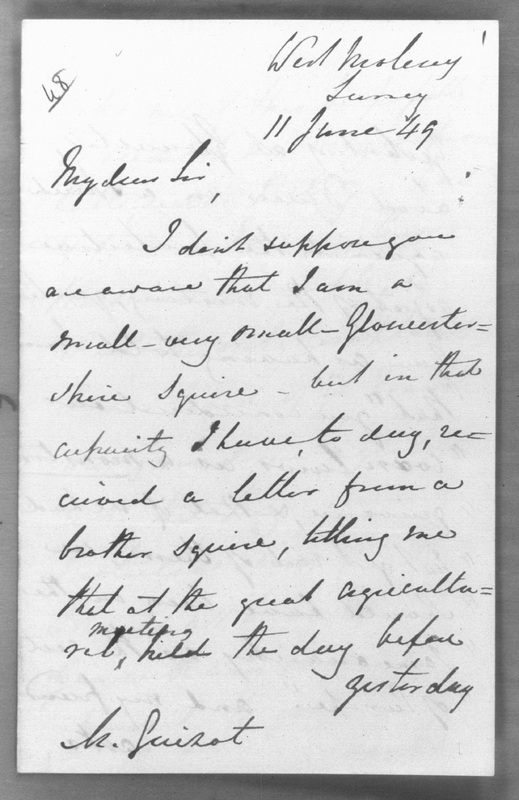 48
West Molesey
Surrey
11 June 49
My dear Sir,
I don't suppose you
are aware that I am a
small – very small – Gloucester=
shire Squire – but in that
capacity I have, to day, re=
ceived a letter from a
brother squire, telling me
that at the great agricultu=
ral meeting, held the day before
yesterday
M. Guizot